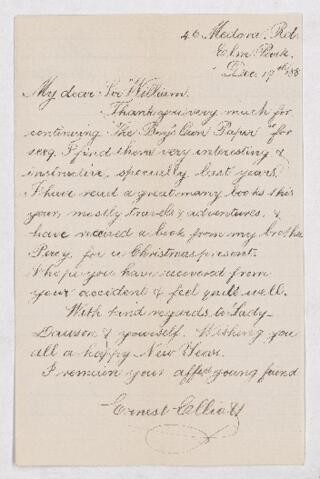 46 Medora Rd
Elm Park
Dec. 17th 188
My dear Sir William.
Thank you very much for
continuing "The Boy's Own Paper" for
1889. I find them very interesting &
instructive, specially last years.
I have read a great many books this
year, mostly travels & adventures, &
have received a book from my brother
Percy, for a Christmas present.
I hope you have recovered from
your accident & feel quite well.
With kind regards to Lady
Dawson & yourself. Wishing you
all a happy New Year.
I remain your affect young friend
Ernest Elliott